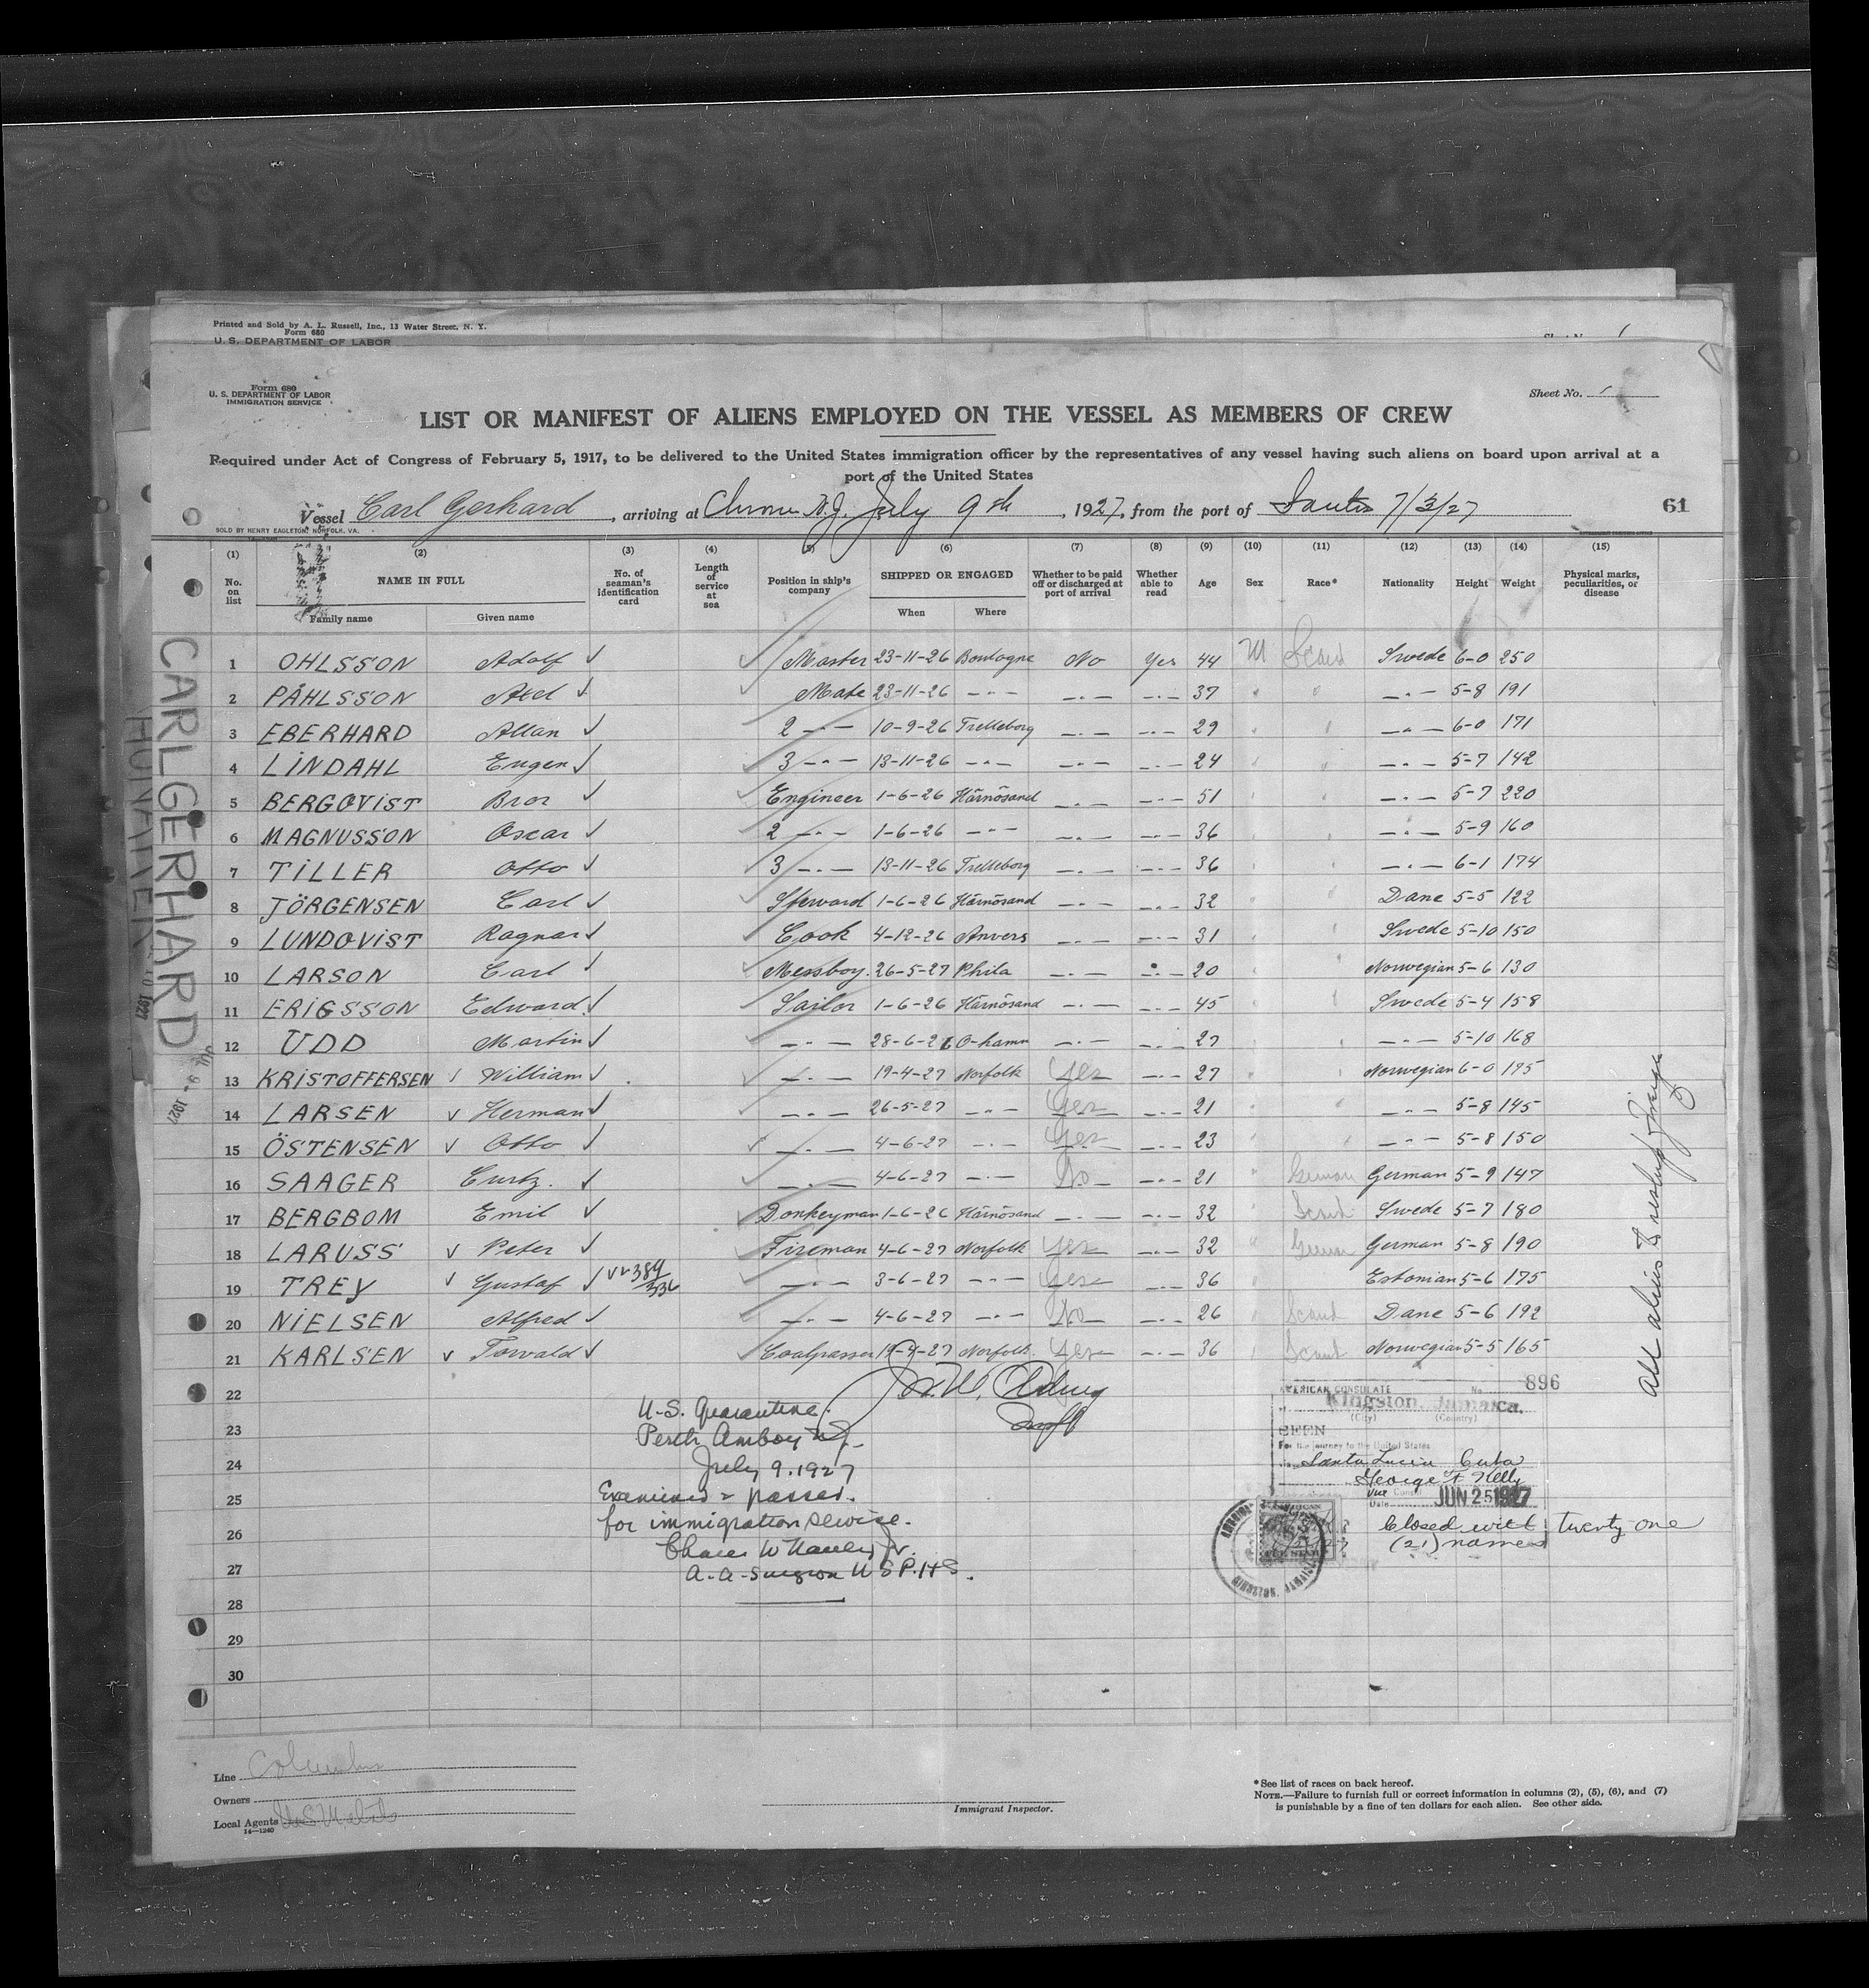 Printed and Sold by A. L. Russell, Inc., 13 Water Street, N. Y.
Form 680
U. S. DEPARTMENT OF LABOR
Form 680
U. S. DEPARTMENT OF LABOR
IMMIGRATION SERVICE
Sheet No. 1
LIST OR MANIFEST OF ALIENS EMPLOYED ON THE VESSEL AS MEMBERS OF CREW
Required under Act of Congress of February 5, 1917, to be delivered to the United States immigration officer by the representatives of any vessel having such aliens on board upon arrival at a
port of the United States
Vessel Carl Gerhard, arriving at Chrome N.J. July 9th, 1927, from the port of 7/3/27
61
SOLD BY HENRY EAGLETON, NORFOLK, VA.
(1) (2) (3) (4) (5) (6) (7) (8) (9) (10) (11) (12) (13) (14) (15)
No. on list NAME IN FULL Family name Given name No. of seaman's identification card Length of service at sea Position in ship's company SHIPPED OR ENGAGED When Where Whether to be paid off or discharged at port of arrival Whether able to read Age Sex Race* Nationality Height Weight Physical marks, peculiarities, or disease
1 OHLSSON Adolf ✓ ✓ Master 23-11-26 Boulogne No Yes 44 M Scand Swede 6-0 250
2 PÅHLSSON Axel ✓ ✓ Mate 23-11-26 -"- -"- -"- 37 " " -"- 5-8 191
3 EBERHARD Allan ✓ 2 -"- 10-9-26 Trelleborg -"- -"- 29 " " -"- 6-0 171
4 LINDAHL Eugen ✓ ✓ 3 -"- 13-11-26 -"- -"- -"- 24 " " -"- 5-7 142
5 BERGQVIST Bror ✓ ✓ Engineer 1-6-26 Härnösand -"- -"- 51 " " -"- 5-7 220
6 MAGNUSSON Oscar ✓ ✓ 2 -"- 1-6-26 -"- -"- -"- 36 " " -"- 5-9 160
7 TILLER Otto ✓ ✓ 3 -"- 13-11-26 Trelleborg -"- -"- 36 " " -"- 6-1 174
8 JÖRGENSEN Carl ✓ ✓ Steward 1-6-26 Härnösand -"- -"- 32 " " Dane 5-5 122
9 LUNDQVIST Ragnar ✓ ✓ Cook 4-12-26 Anvers -"- -"- 31 " " Swede 5-10 150
10 LARSON Carl ✓ ✓ Messboy 26-5-27 Phila -"- -"- 20 " " Norwegian 5-6 130
11 ERIGSSON Edward ✓ ✓ Sailor 1-6-26 Härnösand -"- -"- 45 " " Swede 5-4 158
12 UDD Martin ✓ ✓ -"- 28-6-26 O-hamn -"- -"- 27 " " -"- 5-10 168
13 KRISTOFFERSEN ✓ William ✓ ✓ -"- 19-4-27 Norfolk Yes -"- 27 " " Norwegian 6-0 195
14 LARSEN ✓ Herman ✓ ✓ -"- 26-5-27 -"- Yes -"- 21 " " -"- 5-8 145
15 ÖSTENSEN ✓ Otto ✓ ✓ -"- 4-6-27 -"- Yes -"- 23 " " -"- 5-8 150
16 SAAGER Curtz. ✓ ✓ -"- 4-6-27 -"- No -"- 21 " German German 5-9 147
17 BERGBOM Emil ✓ ✓ Donkeyman 1-6-26 Härnösand -"- -"- 32 " Scand Swede 5-7 180
18 LARUSS ✓ Peter ✓ ✓ Fireman 4-6-27 Norfolk Yes -"- 32 " German German 5-8 190
19 TREY ✓ Gustaf ✓ ✓✓ 384/336 ✓ -"- 3-6-27 -"- Yes -"- 36 Estonian 5-6 175
20 NIELSEN Alfred ✓ ✓ -"- 4-6-27 -"- No -"- 26 " Scand Dane 5-6 192
21 KARLSEN ✓ Torvald ✓ ✓ Coalpasser 19-4-27 Norfolk Yes -"- 36 " Scand Norwegian 5-5 165
22
23
24
25
26
27
28
29
30
U.S. Quarantine.
Perth Amboy N.J.
July 9. 1927
Examined & passed.
for immigration service.
A. A. Surgeon U S P.H.S.
AMERICAN CONSULATE No. 896
at Kingston, Jamaica.
(City) (Country)
SEEN
For the journey to the United States
Santa Lucia Cuba
George F Kelly
Vice Consul
Date JUN 25 1927
Closed with twenty one
(21) names
CARL GERHARD
JUL 9- 1927
Line Columbus
Owners
Local Agents
14—1240
Immigrant Inspector.
*See list of races on back hereof.
NOTE.—Failure to furnish full or correct information in columns (2), (5), (6), and (7)
is punishable by a fine of ten dollars for each alien. See other side.